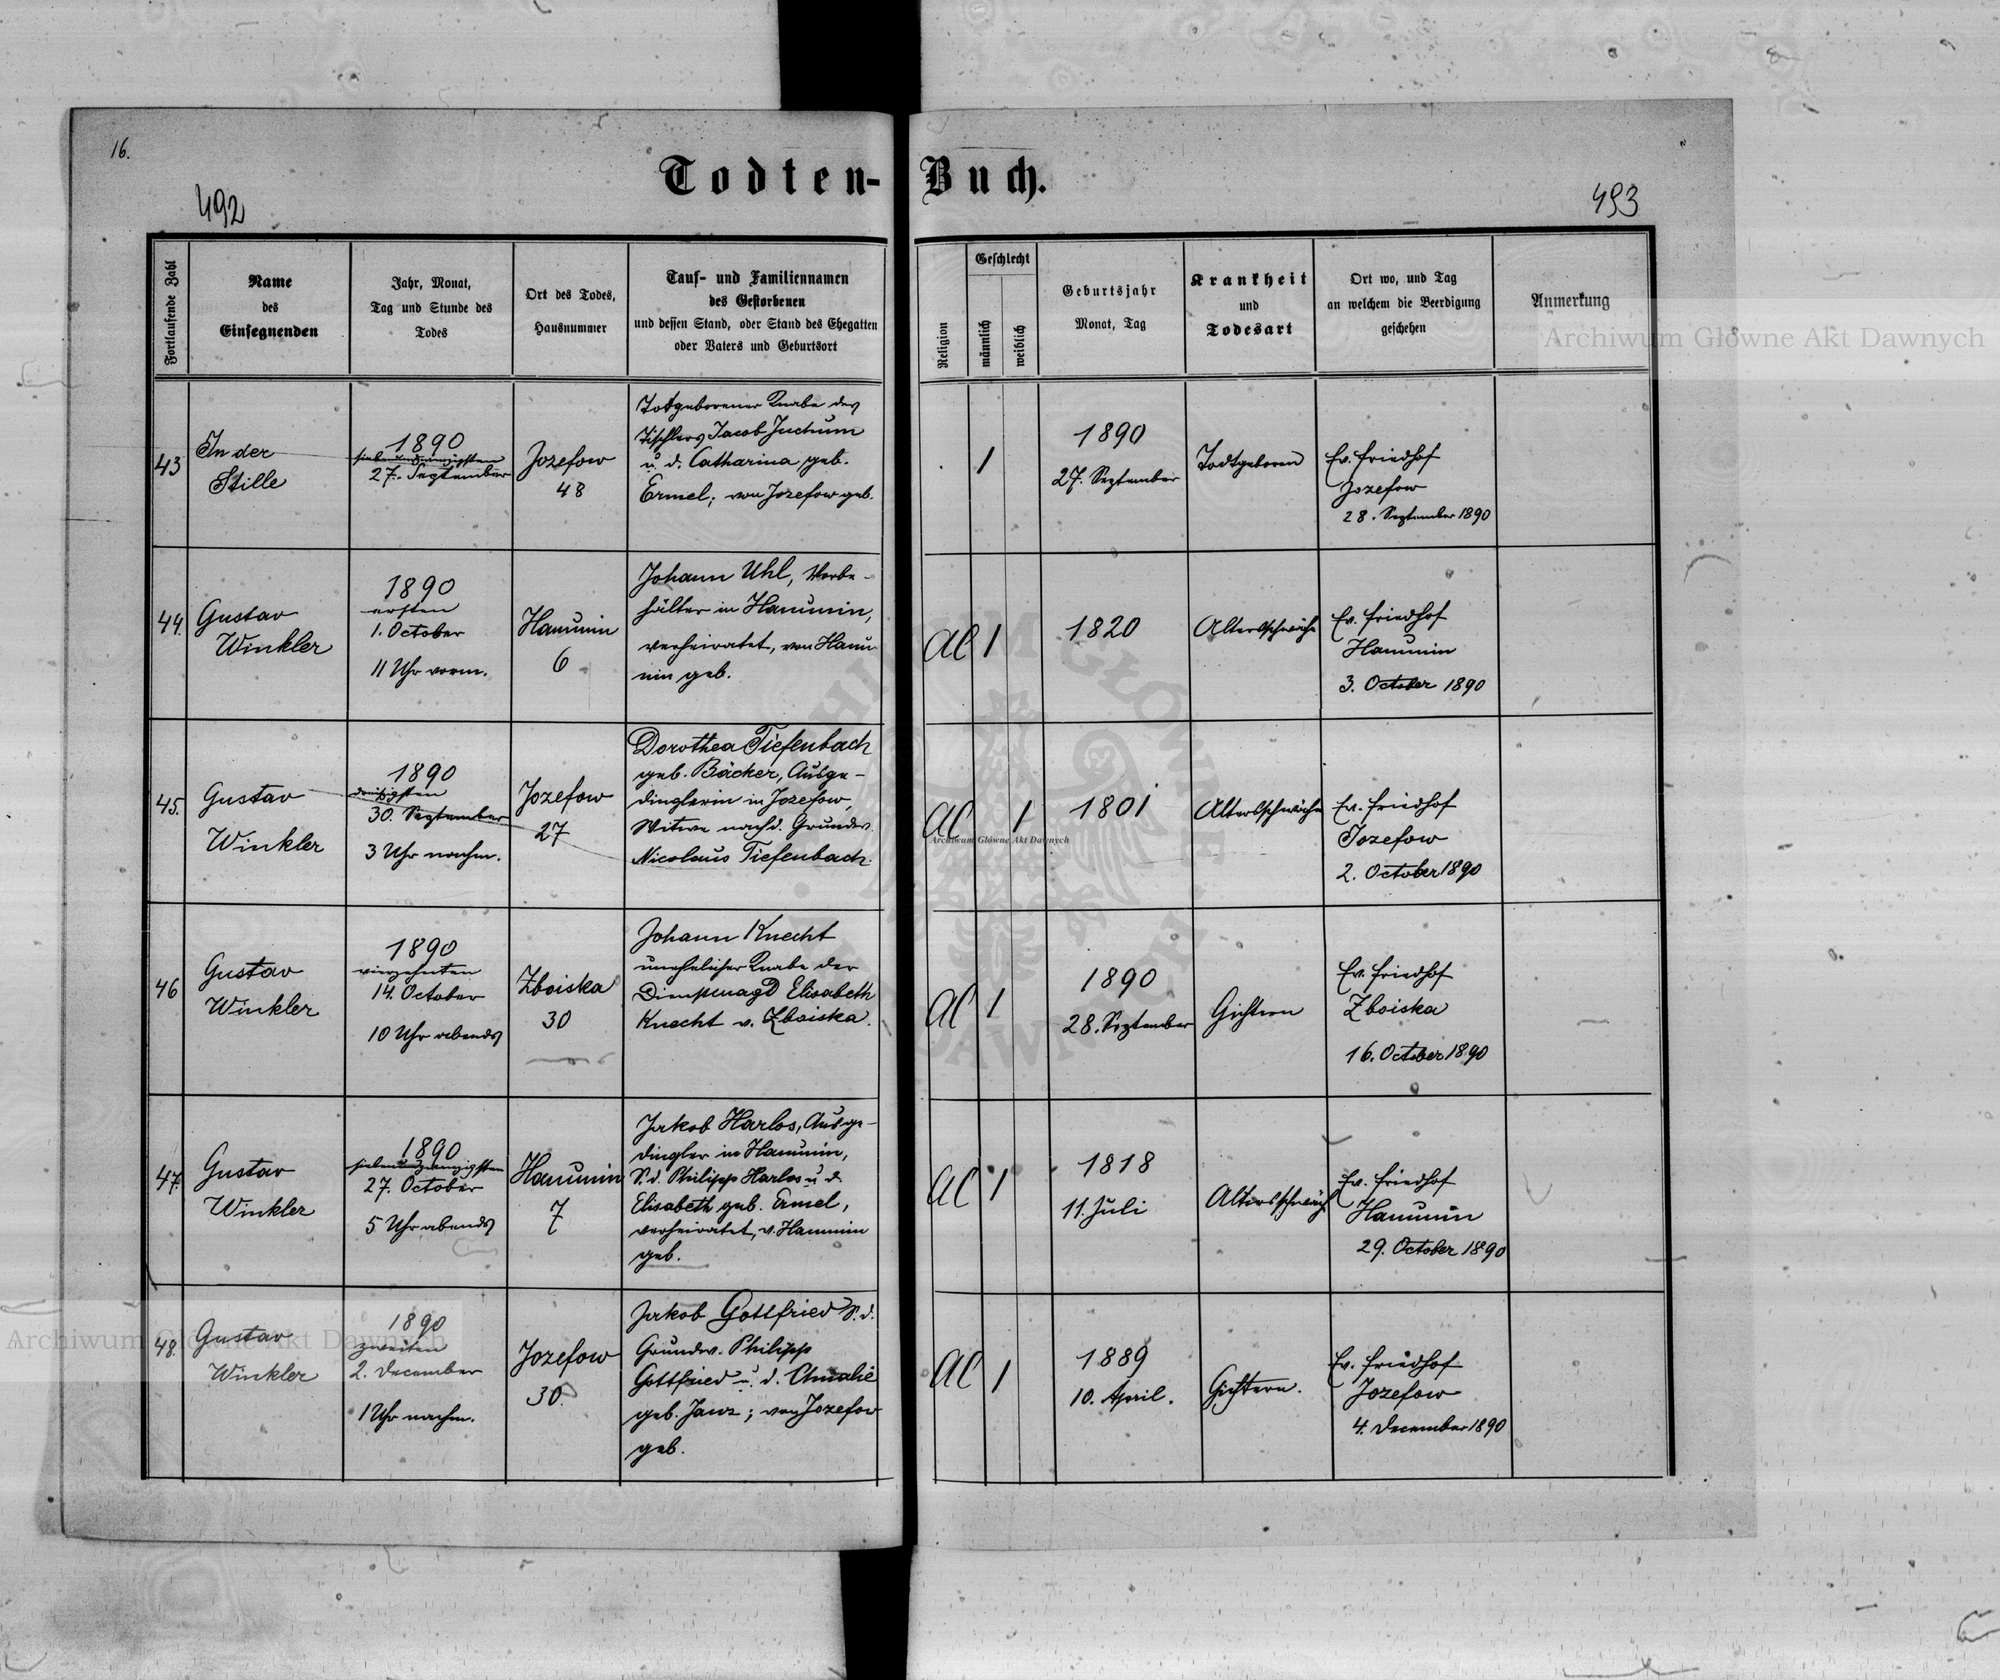 16.
Todten-Buch.
492
493
Fortlaufende Zahl
Name
des
Einsegnenden
Jahr, Monat,
Tag und Stunde des
Todes
Ort des Todes,
Hausnummer
Tauf- und Familiennamen
des Gestorbenen
und dessen Stand, oder Stand des Ehegatten
oder Vaters und Geburtsort
Religion
Geschlecht
männlich
weiblich
Geburtsjahr
Monat, Tag
Krankheit
und
Todesart
Ort wo, und Tag
an welchem die Beerdigung
geschehen
Anmerkung
43
In der
Stille
1890
siebenundzwanzigsten
27. September
Jozefow
48
Todtgeborener Knabe des
Tischlers Jacob Juchum
u. d. Catharina geb.
Ermel; von Jozefow geb.
1
1890
27. September
Todtgeboren
Ev. Friedhof
Jozefow
28. September 1890
44.
Gustav
Winkler
1890
ersten
1. October
11 Uhr vorm.
Hanunin
6
Johann Uhl, Vorbe-
hälter in Hanunin,
verheiratet, von Hanu-
nin geb.
AC
1
1820
Altersschwäche
Ev. Friedhof
Hanunin
3. October 1890
45.
Gustav
Winkler
1890
dreißigsten
30. September
3 Uhr nachm.
Jozefow
27
Dorothea Tiefenbach
geb. Bäcker, Ausge-
dinglerin in Jozefow,
Witwe nach d. Grundw.
Nicolaus Tiefenbach.
AC
1
1801
Altersschwäche
Ev. Friedhof
Jozefow
2. October 1890
46
Gustav
Winkler
1890
vierzehnten
14. October
10 Uhr abends
Zboiska
30
Johann Knecht
unehelicher Knabe der
Dienstmagd Elisabeth
Knecht v. Zboiska.
AC
1
1890
28. September
Gichtern
Ev. Friedhof
Zboiska
16. October 1890
47.
Gustav
Winkler
1890
siebenundzwanzigsten
27. October
5 Uhr abends
Hanunin
7
Jakob Harlos, Ausge-
dingler in Hanunin,
S. d. Philipp Harlos u. d.
Elisabeth geb. Ermel,
verheiratet, v. Hanunin
geb.
AC
1
1818
11. Juli
Altersschwäche
Ev. Friedhof
Hanunin
29. October 1890
48.
Gustav
Winkler
1890
zweiten
2. December
1 Uhr nachm.
Jozefow
30.
Jakob Gottfried S. d.
Grundw. Philipp
Gottfried u. d. Amalie
geb. Janz; von Jozefow
geb.
AC
1
1889
10. April.
Gichtern.
Ev. Friedhof
Jozefow
4. December 1890
Archiwum Główne Akt Dawnych
Archiwum Główne Akt Dawnych
Archiwum Główne Akt Dawnych